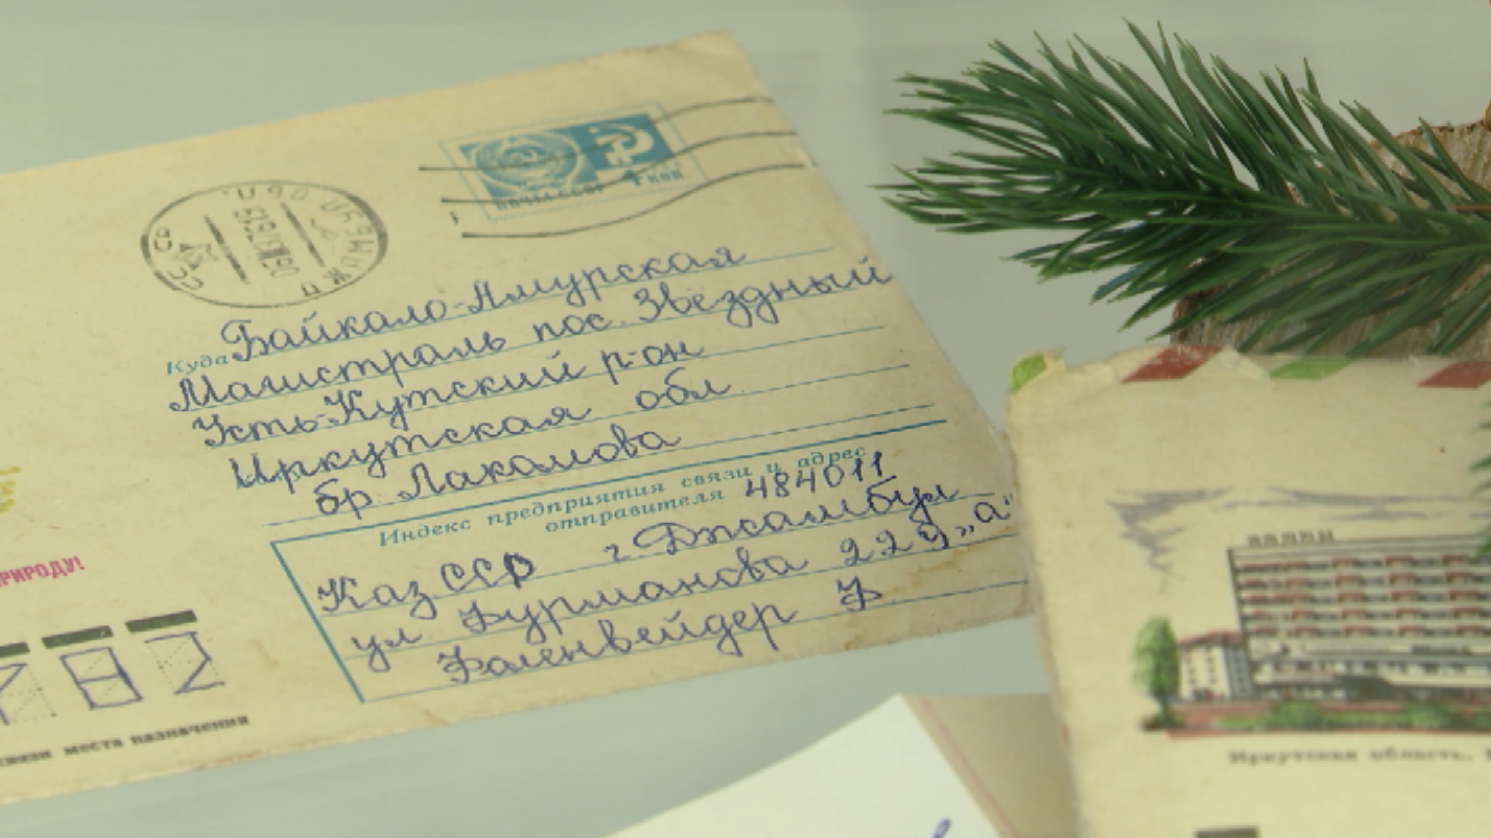 ПОЧТА СССР 4 КОП
СССР
Куда Байкало-Амурская
Магистраль пос. Звёздный
Усть-Кутский р-он
Иркутская обл
бр. Лакомова
Индекс предприятия связи и адрес
отправителя 484011
Каз ССР г Джамбул
ул Фурманова 229 „а"
Фаленвейдер Ф
ПРИРОДУ!
связи места назначения
Иркутская область.